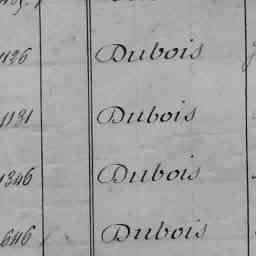 1136 Dubois
1131 Dubois
1346 Dubois
646 Dubois